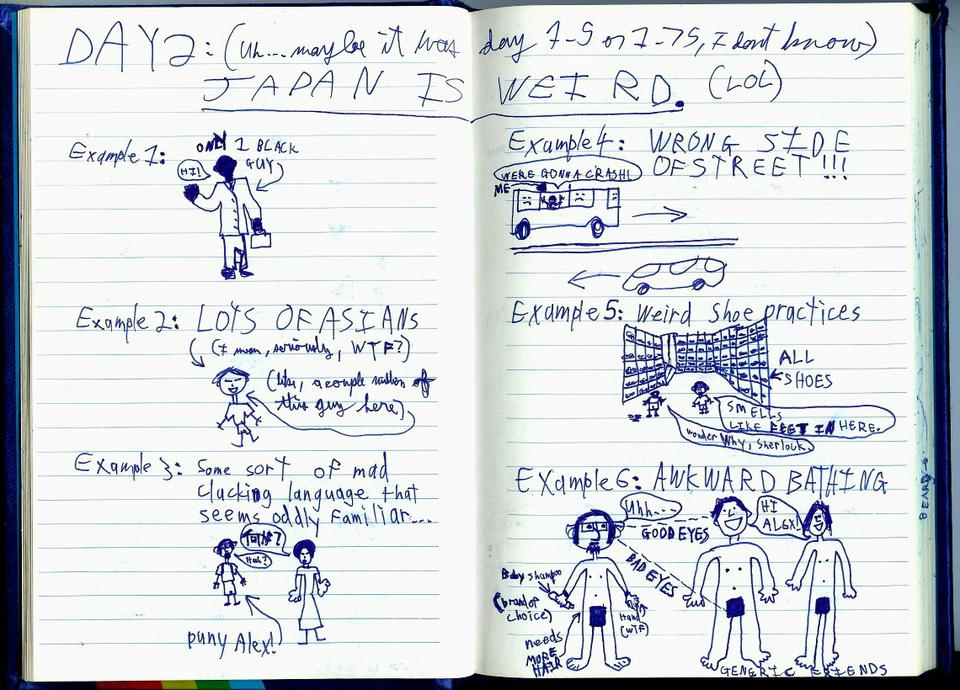 DAY 2: (Uh... maybe it was day 7-5 or 7-75, I don't know)
JAPAN IS WEIRD. (LOL)
Example 1:
ONLY 1 BLACK
GUY
HI!
Example 2: LOTS OF ASIANS
(I mean, seriously, WTF?)
(like, a couple million of
this guy here)
Example 3: Some sort of mad
clacking language that
seems oddly familiar...
Huh?
puny Alex!
Example 4: WRONG SIDE
OF STREET!!!
WERE GONNA CRASH!
ME
Example 5: Weird Shoe practices
ALL
SHOES
SMELLS
LIKE FEET IN HERE.
wonder Why, Sherlock.
Example 6: AWKWARD BATHING
Uhh...
GOOD EYES
HI
ALEX!
BAD EYES
Baby shampoo
(brand of
choice)
Hand
(WTF)
needs
MORE
HAIR
GENERIC FRIENDS